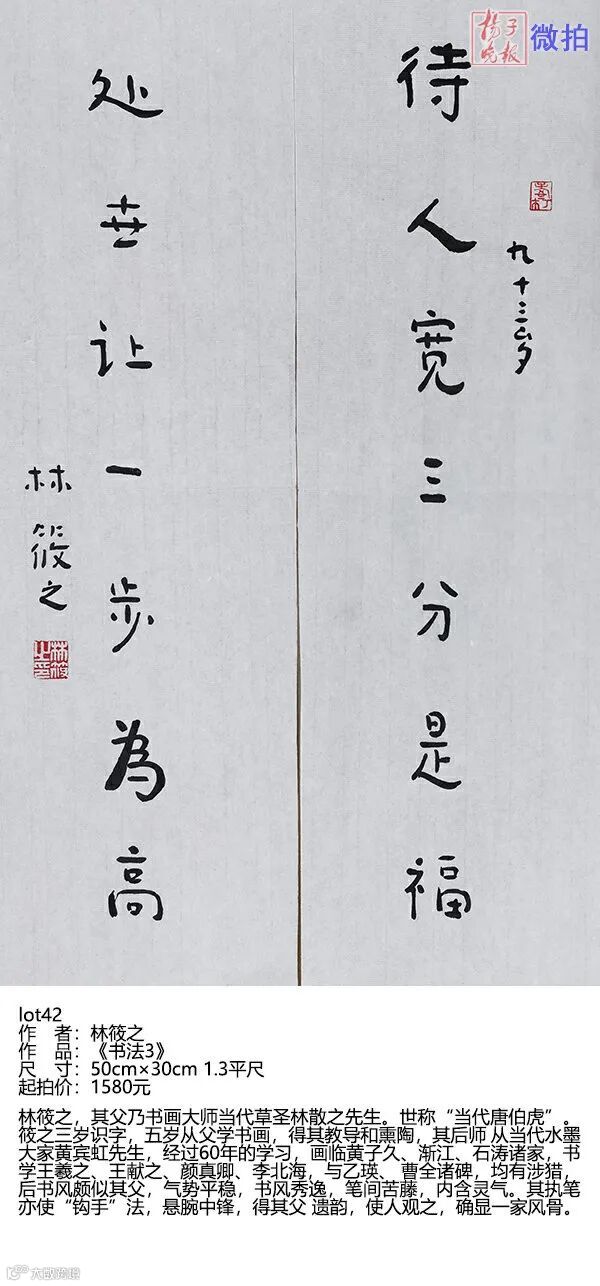 扬子晚报 微拍
待人宽三分是福
九十三岁
处世让一步为高
林筱之
林筱之印
lot42
作 者：林筱之
作 品：《书法3》
尺 寸：50cm×30cm 1.3平尺
起拍价：1580元
林筱之，其父乃书画大师当代草圣林散之先生。世称“当代唐伯虎”。
筱之三岁识字，五岁从父学书画，得其教导和熏陶，其后师 从当代水墨
大家黄宾虹先生，经过60年的学习，画临黄子久、渐江、石涛诸家，书
学王羲之、王献之、颜真卿、李北海，与乙瑛、曹全诸碑，均有涉猎，
后书风颇似其父，气势平稳，书风秀逸，笔间苦藤，内含灵气。其执笔
亦使“钩手”法，悬腕中锋，得其父 遗韵，使人观之，确显一家风骨。
大数跨境